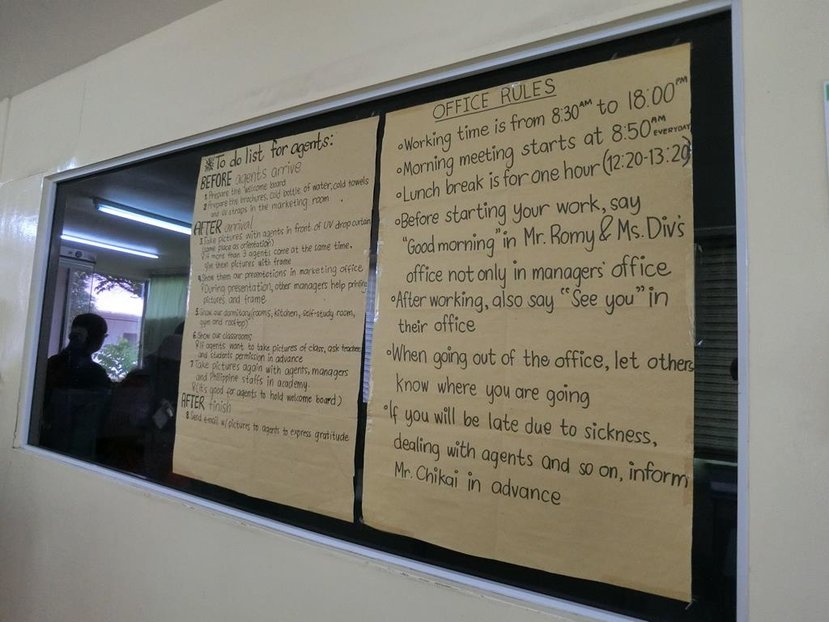 ※To do list for agents:
BEFORE agents arrive
1 Prepare the welcome board
2 Prepare the brochures, cold bottle of water, cold towels
and ID straps in the marketing room
AFTER arrival
3 Take pictures with agents in front of UV drop curtain
(same place as orientation)
If more than 3 agents come at the same time,
give them pictures with frame
4 Show them our presentations in marketing office
During presentation, other managers help printing
pictures and frame
5 Show our dormitory (rooms, kitchen, self-study room,
gym and rooftop)
6 Show our classrooms
If agents want to take pictures of class, ask teachers
and students permission in advance
7 Take pictures again with agents, managers
and Philippine staffs in academy.
(It's good for agents to hold welcome board)
AFTER finish
8 Send e-mail w/ pictures to agents to express gratitude
OFFICE RULES
○Working time is from 8:30AM to 18:00PM
○Morning meeting starts at 8:50AM EVERYDAY
○Lunch break is for one hour (12:20-13:20)
○Before starting your work, say
"Good morning" in Mr. Romy & Ms. Div's
office not only in managers' office
○After working, also say "See you" in
their office
○When going out of the office, let others
know where you are going
○If you will be late due to sickness,
dealing with agents and so on, inform
Mr. Chikai in advance